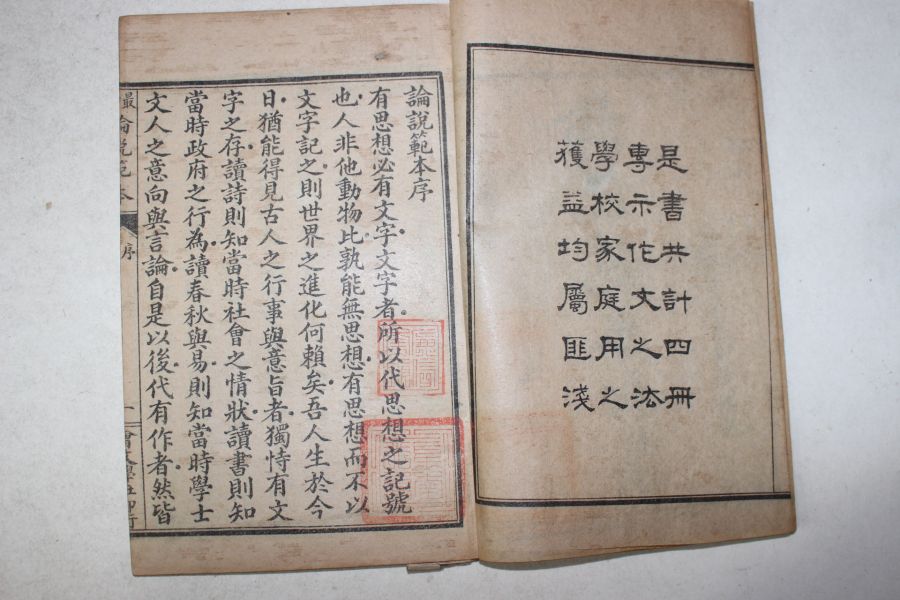 是書共計四冊
專示作文之法
學校家庭用之
獲益均屬匪淺
論說範本序
有思想必有文字文字者所以代思想之記號
也人非他動物比孰能無思想有思想而不以
文字記之則世界之進化何賴矣吾人生於今
日猶能得見古人之行事與意旨者獨恃有文
字之存讀詩則知當時社會之情狀讀書則知
當時政府之行為讀春秋與易則知當時學士
文人之意向與言論自是以後代有作者然皆
最論說範本
序
一
會文學社印行